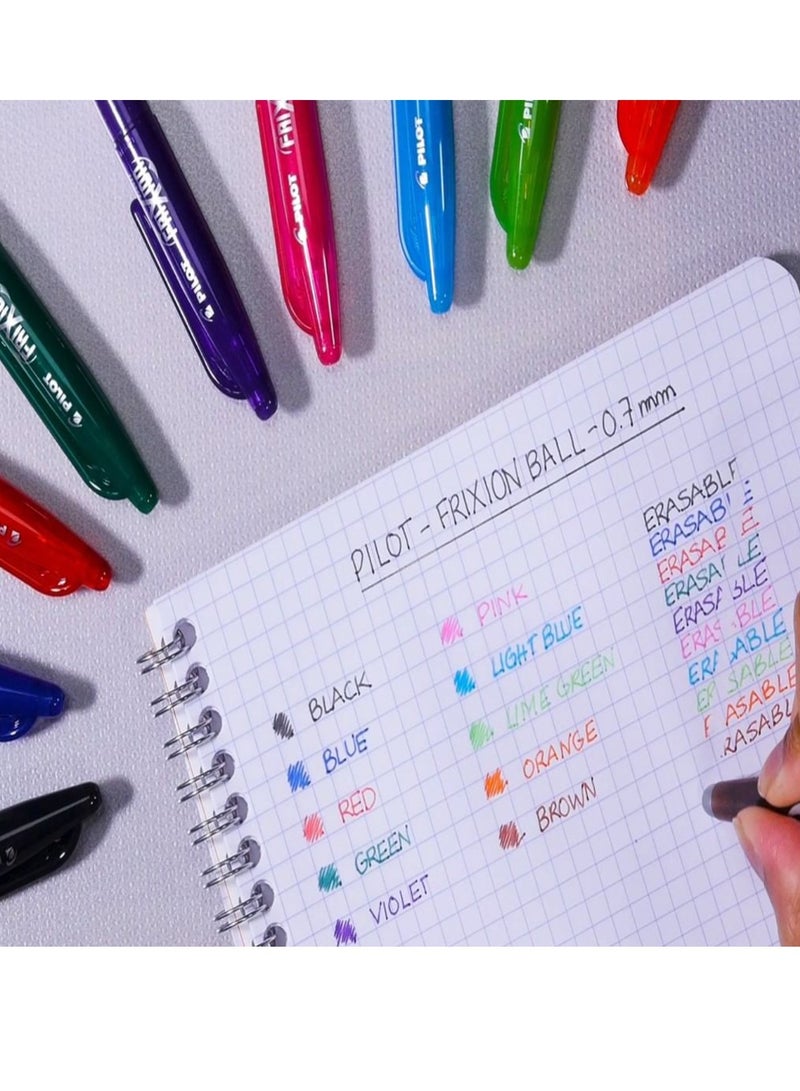 FRIXION
PILOT
FRIX
PILOT
PILOT
FRIX
PILOT
PILOT - FRIXION BALL - 0.7 mm
BLACK
BLUE
RED
GREEN
VIOLET
PINK
LIGHT BLUE
LIME GREEN
ORANGE
BROWN
ERASABLE
ERASAB E
ERASAB E
ERASA LE
ERASA BLE
ERAS BLE
ERA ABLE
ER SABLE
E ASABLE
RASABL